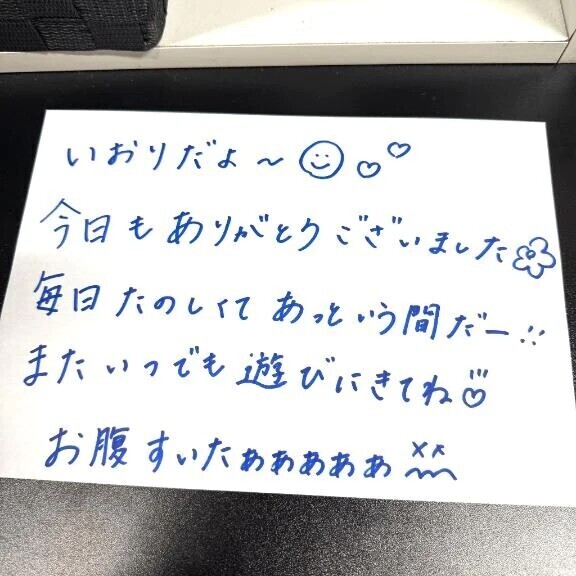 いおりだよ〜
今日もありがとうございました
毎日たのしくてあっという間だー!!
またいつでも遊びにきてね
お腹すいたぁぁぁぁぁ